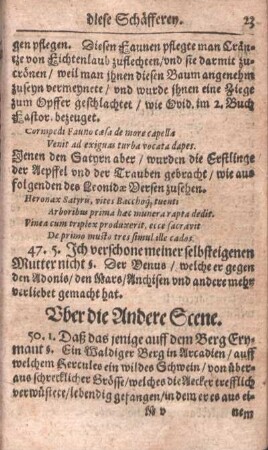 diese Schäfferey. 23
gen pflegen. Diesen Faunen pflegte man Crän-
tze von Fichtenlaub zuflechten/ vnd sie darmit zu-
crönen / weil man jhnen diesen Baum angenehm
zuseyn vermeynete / vnd wurde jhnen eine Ziege
zum Opffer geschlachtet / wie Ovid. im 2. Buch
Fastor. bezeuget.
Cornipedi Fauno cæsa de more capella
Venit ad exiguas turba vocata dapes.
Jenen den Satyrn aber / wurden die Erstlinge
der Aepffel vnd der Trauben gebracht / wie aus
folgenden des Leonidæ Versen zusehen.
Heronax Satyrû, vites Bacchoq́; tuenti
Arboribus prima hæc munera rapta dedit.
Vinea cum triplex produxerit, ecce sacravit
De primo musto tres simul ille cados.
47. 5. Ich verschone meiner selbsteigenen
Mutter nicht ꝛ. Der Venus / welche er gegen
den Adonis/ den Mars/ Anchisen vnd andere mehr
verliebet gemacht hat.
Vber die Andere Scene.
50. 1. Daß das jenige auff dem Berg Ery-
mant ꝛ. Ein Waldiger Berg in Arcadien / auff
welchem Hercules ein wildes Schwein / von über-
aus schrecklicher Grösse/ welches die Aecker trefflich
verwüstete/ lebendig gefangen/ in dem er es aus ei-
M v nem